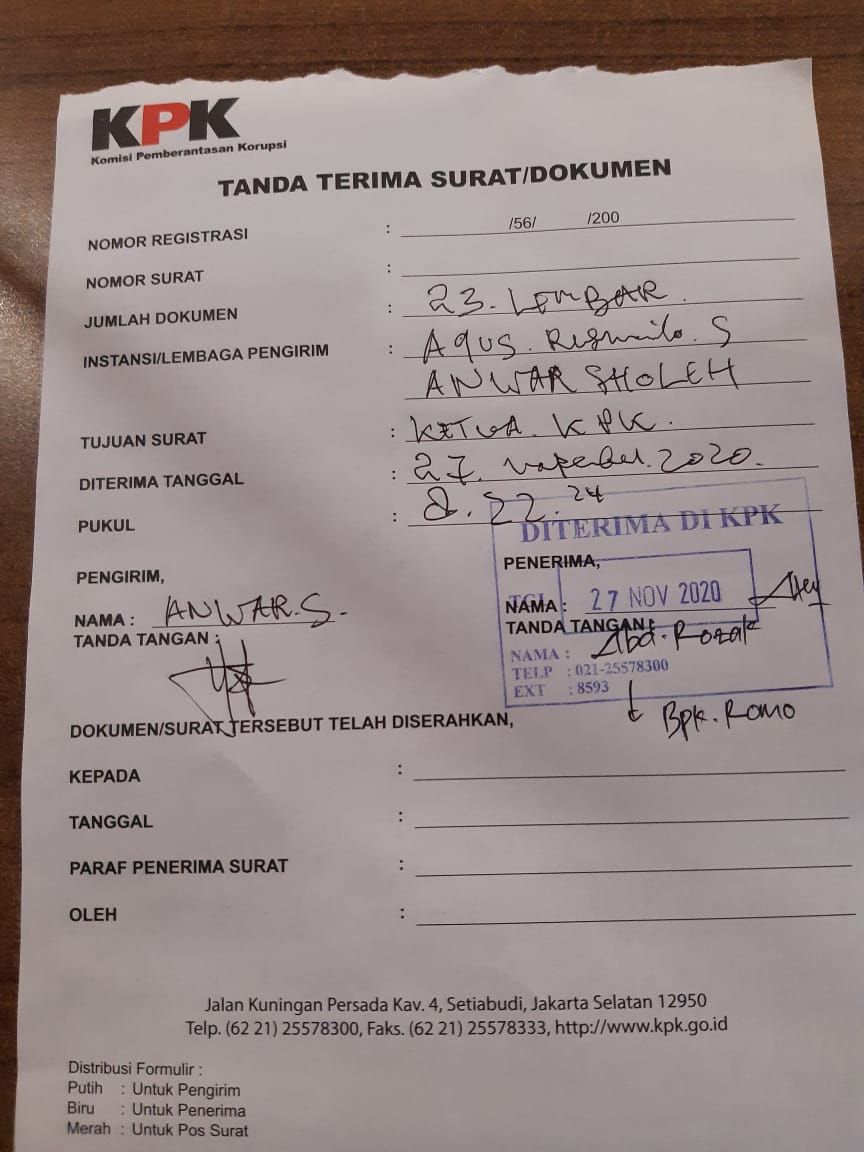 KPK
Komisi Pemberantasan Korupsi
TANDA TERIMA SURAT/DOKUMEN
NOMOR REGISTRASI : /56/ /200
NOMOR SURAT :
JUMLAH DOKUMEN : 23. LEMBAR.
INSTANSI/LEMBAGA PENGIRIM : AGUS. S
ANWAR SHOLEH
TUJUAN SURAT : KETUA. KPK.
DITERIMA TANGGAL : 27. 2020.
PUKUL : 22.24
DITERIMA DI KPK
PENGIRIM,
PENERIMA,
NAMA : ANWAR.S.
TGL
NAMA : 27 NOV 2020
TANDA TANGAN :
TANDA TANGAN : Abd. Rozak
NAMA :
TELP : 021-25578300
EXT : 8593
Bpk. Romo
DOKUMEN/SURAT TERSEBUT TELAH DISERAHKAN,
KEPADA :
TANGGAL :
PARAF PENERIMA SURAT :
OLEH :
Jalan Kuningan Persada Kav. 4, Setiabudi, Jakarta Selatan 12950
Telp. (62 21) 25578300, Faks. (62 21) 25578333, http://www.kpk.go.id
Distribusi Formulir :
Putih : Untuk Pengirim
Biru : Untuk Penerima
Merah : Untuk Pos Surat